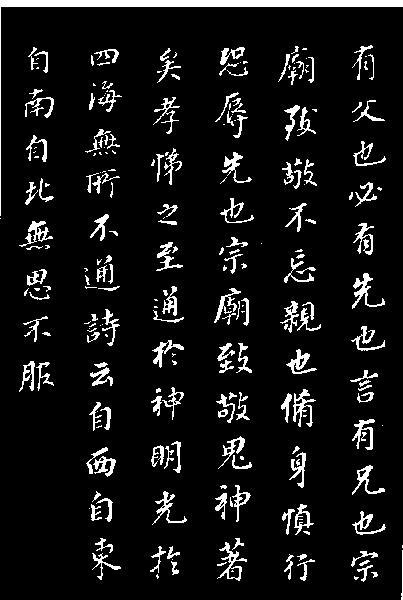 有父也必有先也言有兄也宗
廟致敬不忘親也脩身慎行
恐辱先也宗廟致敬鬼神著
矣孝悌之至通於神明光於
四海無所不通詩云自西自東
自南自北無思不服